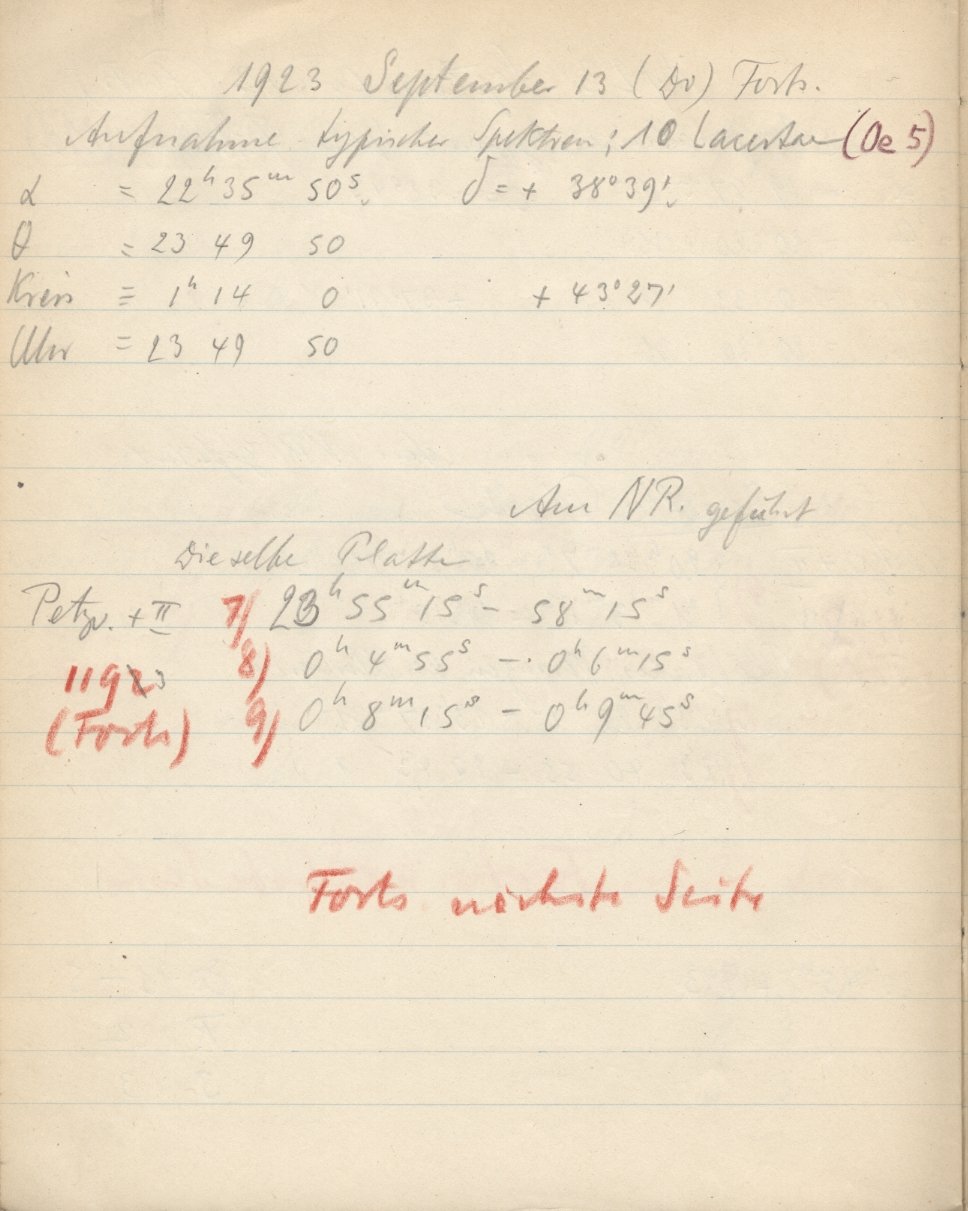 1923 September 13 (Do) Forts.
Aufnahme typischer Spektren; 10 Lacertae (Oe 5)
α = 22ʰ 35ᵐ 50ˢ, δ = + 38° 39',
θ = 23 49 50
Kreis = 1ʰ 14 0 + 43° 27'
Uhr = 23 49 50
Am NR. geführt
Dieselbe Platte
Petzv. + II 7) 23ʰ 55ᵐ 15ˢ – 58ᵐ 15ˢ
8) 0ʰ 4ᵐ 55ˢ – 0ʰ 6ᵐ 15ˢ
1193
(Forts) 9) 0ʰ 8ᵐ 15ˢ – 0ʰ 9ᵐ 45ˢ
Forts nächste Seite